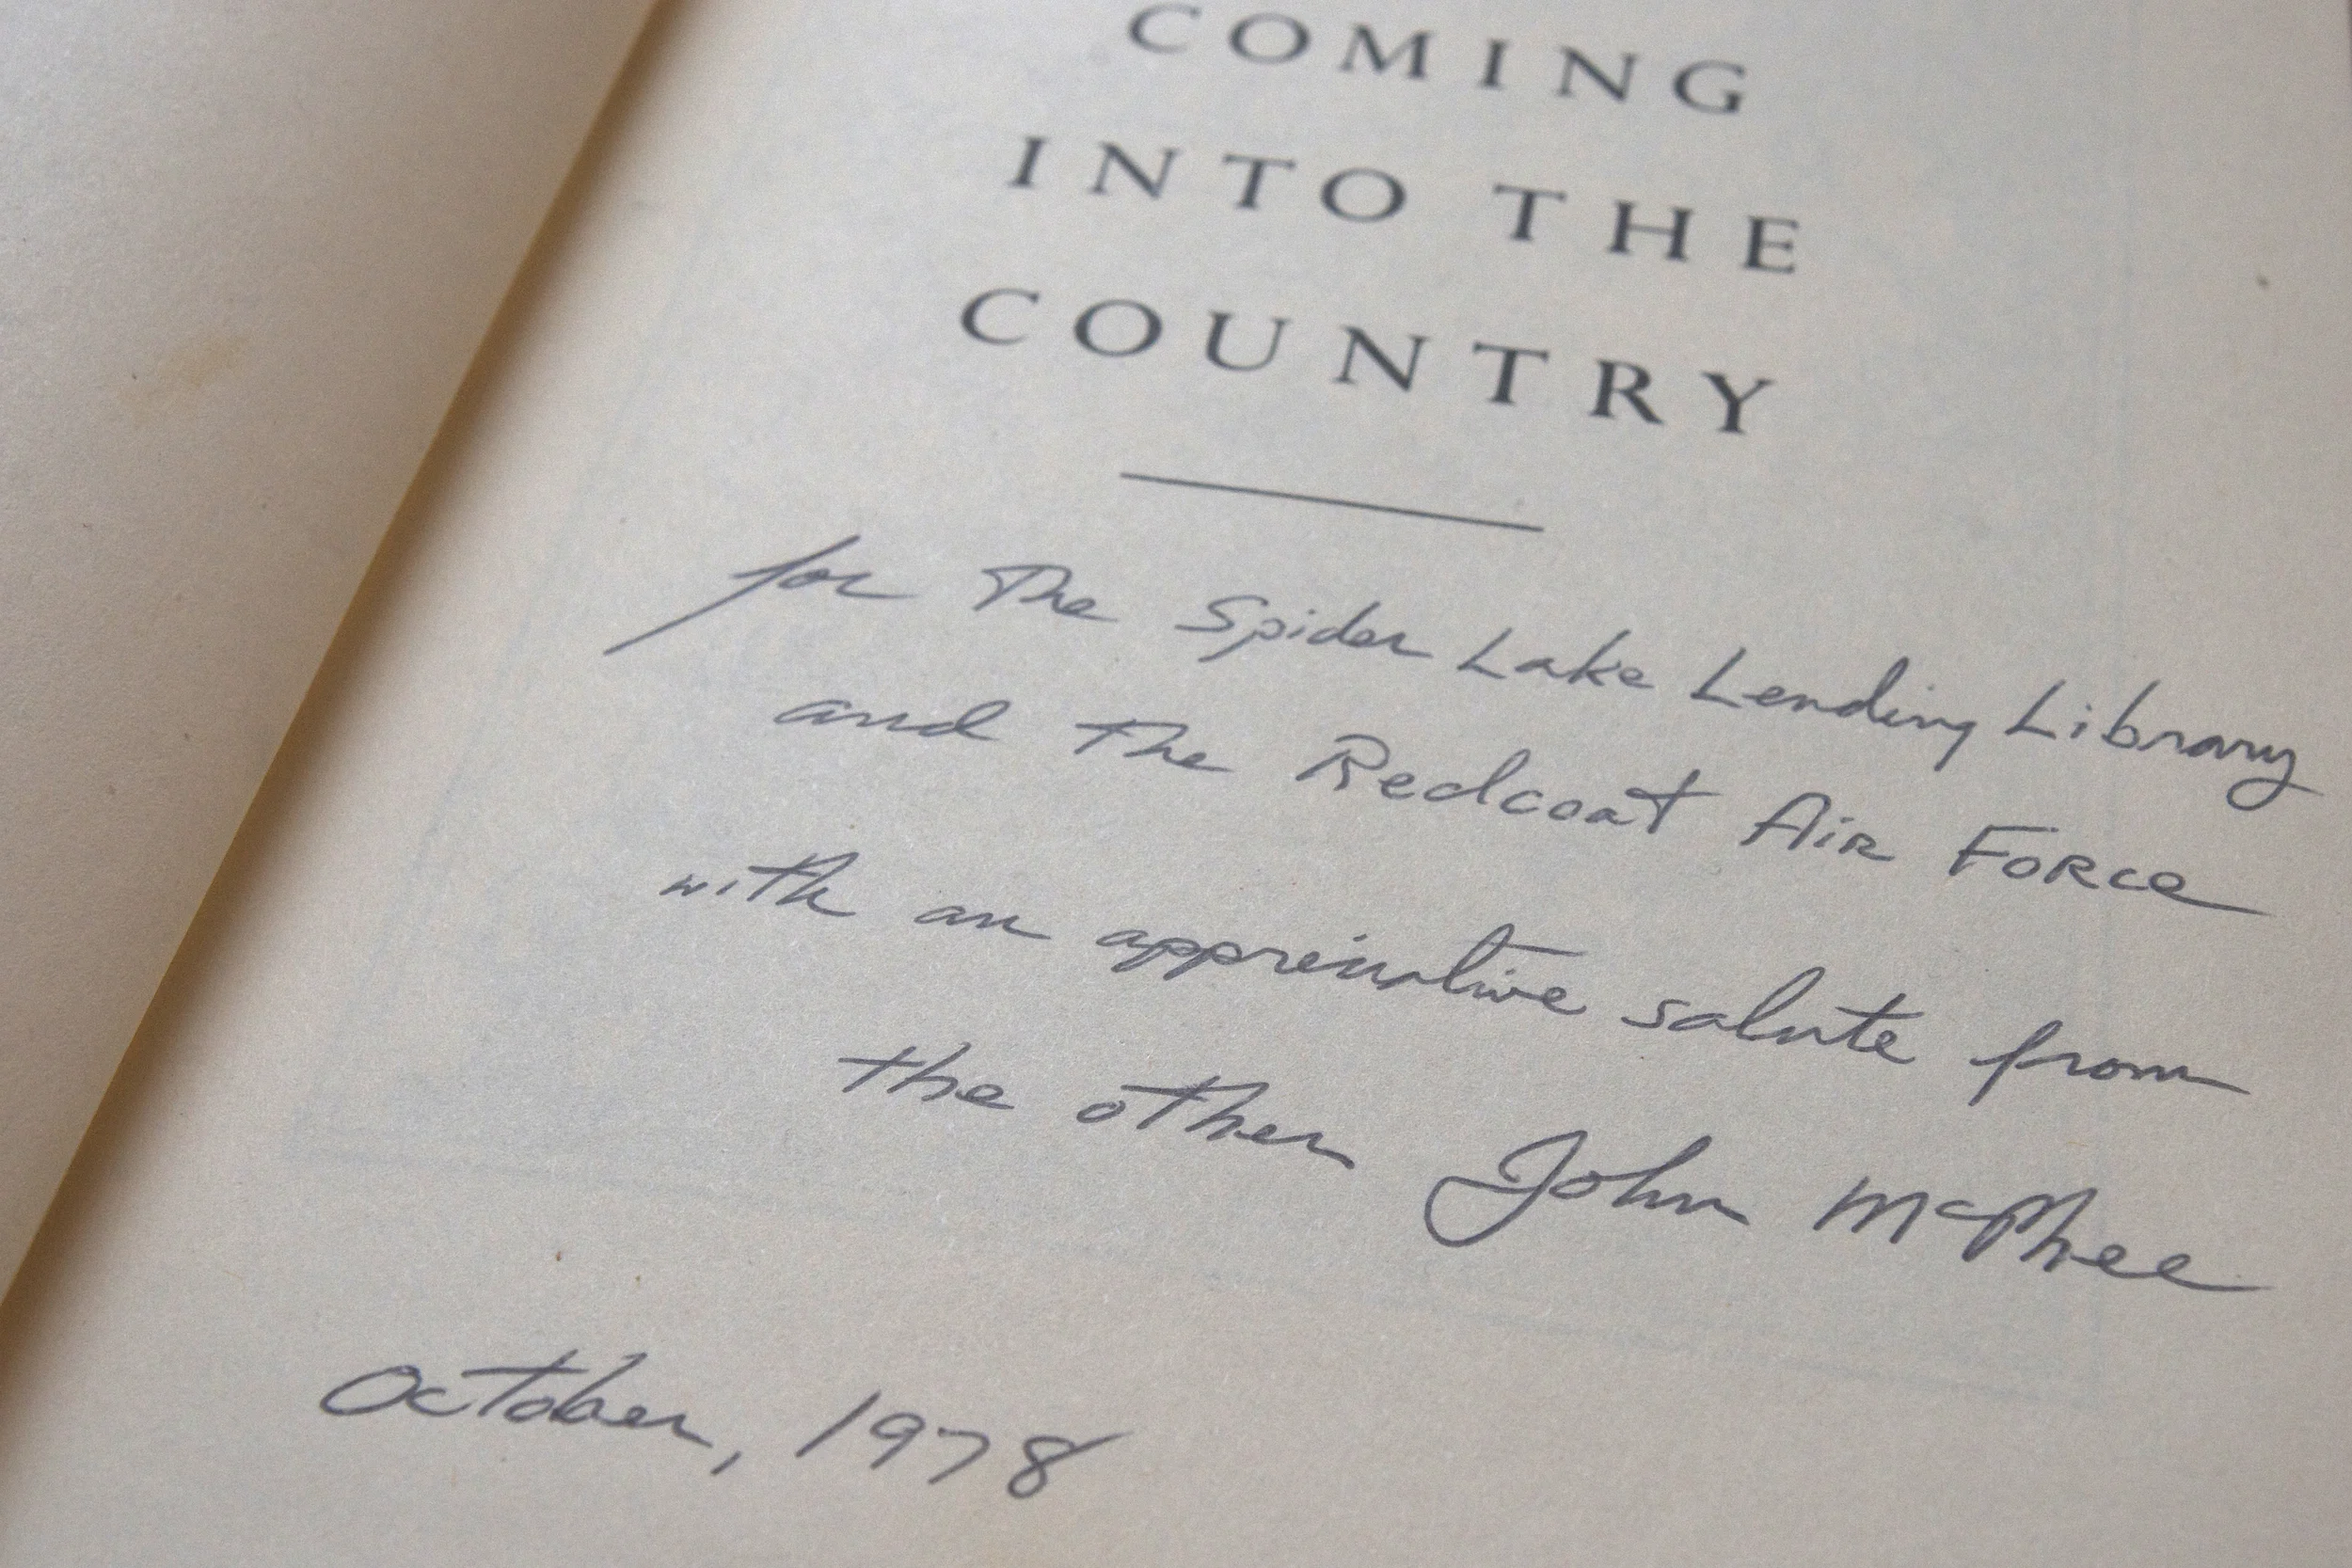 COMING
INTO THE
COUNTRY
for The Spider Lake Lending Library
and The Redcoat Air Force
with an appreciative salute from
the other John McPhee
October, 1978